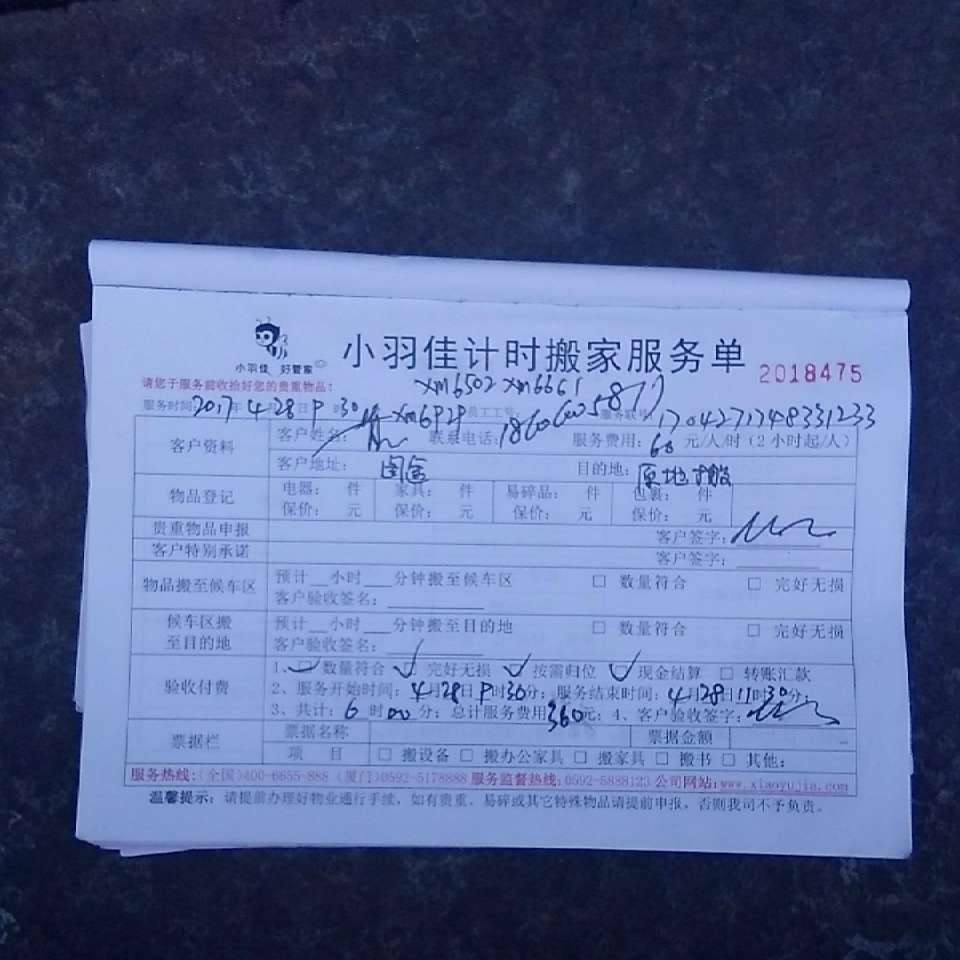 小羽佳 好管家
小羽佳计时搬家服务单
2018475
请您于服务前收拾好您的贵重物品!
xm6502 xm6661
服务时间: 2017年4月28日9时30 xm6929 员工工号: 服务联号: 170427174833 1233
客户资料
客户姓名: 联系电话: 服务费用: 60 元/人/时(2小时起/人)
客户地址: 目的地: 原地搬
物品登记
电器: 件 家具: 件 易碎品: 件 包裹: 件
保价: 元 保价: 元 保价: 元 保价: 元
贵重物品申报 客户签字:
客户特别承诺 客户签字:
物品搬至候车区
预计__小时___分钟搬至候车区 □ 数量符合 □ 完好无损
客户验收签名:
候车区搬至目的地
预计__小时___分钟搬至目的地 □ 数量符合 □ 完好无损
客户验收签名:
验收付费
1、☑ 数量符合 ☑ 完好无损 ☑ 按需归位 ☑ 现金结算 □ 转账汇款
2、服务开始时间: 4月28日9时30分; 服务结束时间: 4月28日11时30分;
3、共计: 6时00分; 总计服务费用360元; 4、客户验收签字:
票据栏
票据名称 票据金额
项 目 □ 搬设备 □ 搬办公家具 □ 搬家具 □ 搬书 □ 其他:
服务热线:(全国)400-6655-888 (厦门)0592-5178888 服务监督热线:0592-5888123 公司网站:www.xiaoyujia.com
温馨提示: 请提前办理好物业通行手续, 如有贵重、易碎或其它特殊物品请提前申报, 否则我司不予负责。